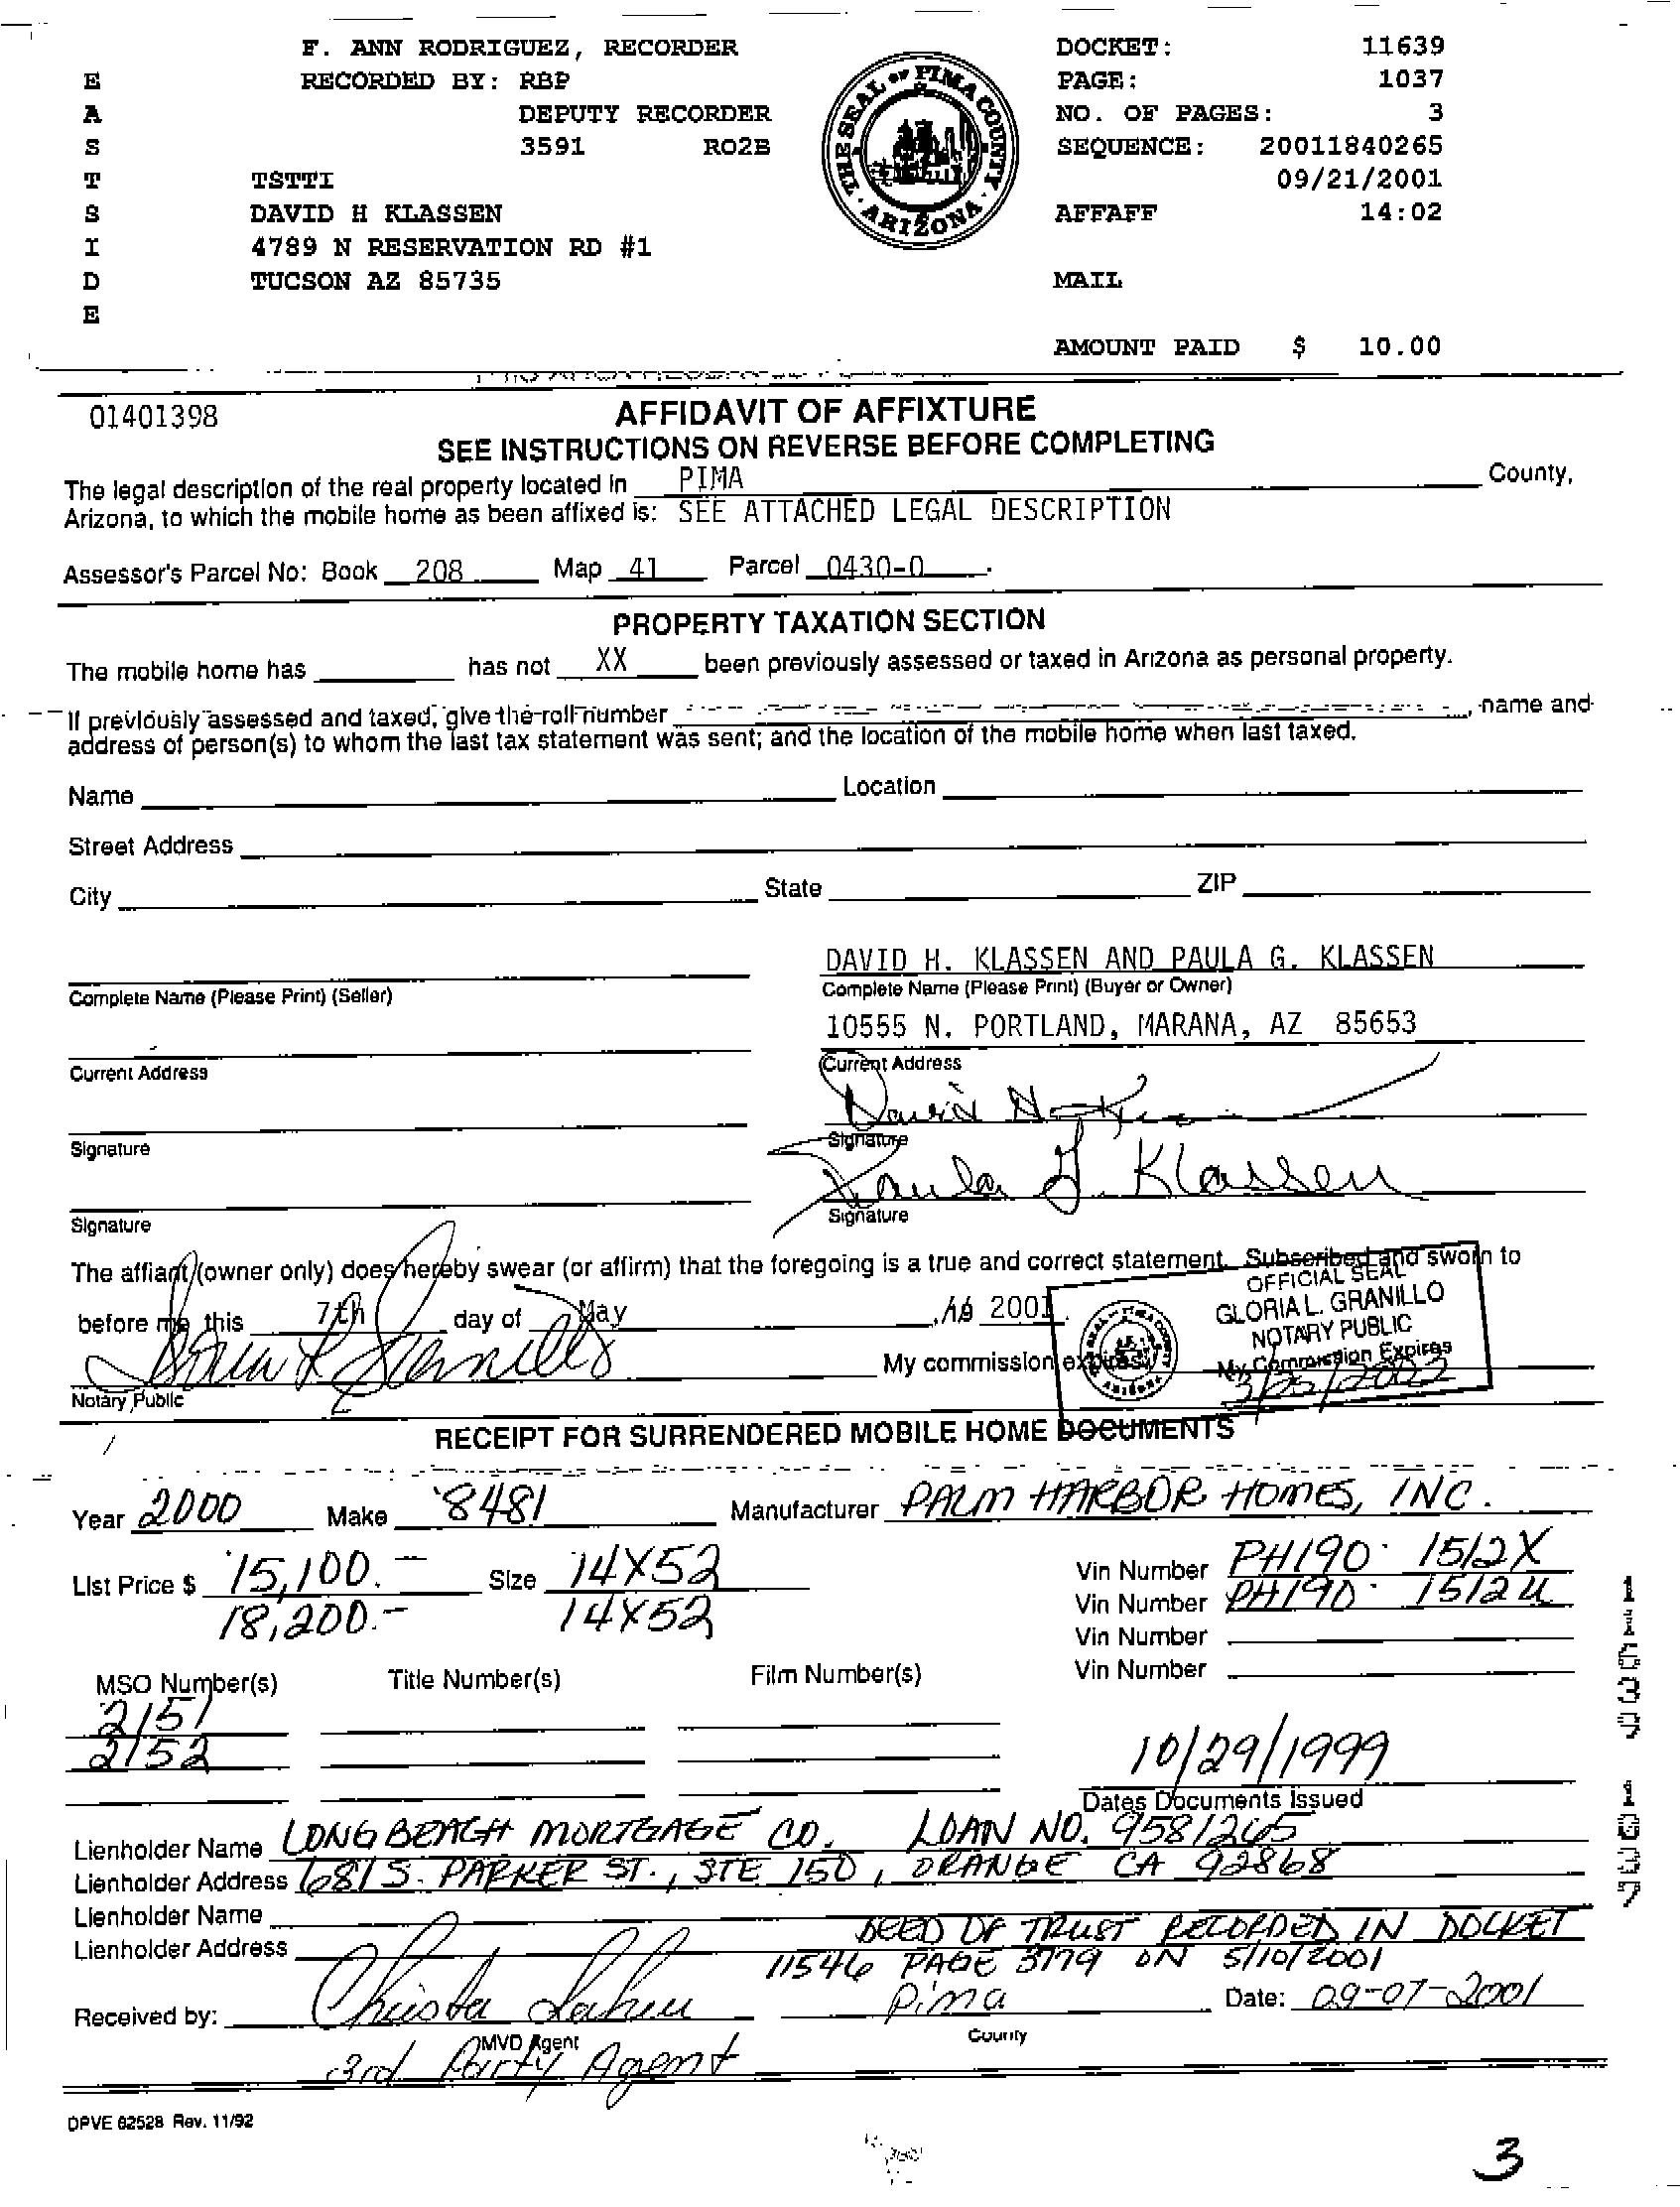 F. ANN RODRIGUEZ, RECORDER
RECORDED BY: RBP
DEPUTY RECORDER
3591 RO2B
E
A
S
T
S
I
D
E
TSTTI
DAVID H KLASSEN
4789 N RESERVATION RD #1
TUCSON AZ 85735
THE SEAL OF PIMA COUNTY · ARIZONA ·
DOCKET: 11639
PAGE: 1037
NO. OF PAGES: 3
SEQUENCE: 20011840265
09/21/2001
AFFAFF 14:02
MAIL
AMOUNT PAID $ 10.00
01401398
AFFIDAVIT OF AFFIXTURE
SEE INSTRUCTIONS ON REVERSE BEFORE COMPLETING
The legal description of the real property located in PIMA County,
Arizona, to which the mobile home as been affixed is: SEE ATTACHED LEGAL DESCRIPTION
Assessor's Parcel No: Book 208 Map 41 Parcel 0430-0
PROPERTY TAXATION SECTION
The mobile home has has not XX been previously assessed or taxed in Arizona as personal property.
If previously assessed and taxed, give the roll number , name and
address of person(s) to whom the last tax statement was sent; and the location of the mobile home when last taxed.
Name Location
Street Address
City State ZIP
DAVID H. KLASSEN AND PAULA G. KLASSEN
Complete Name (Please Print) (Seller) Complete Name (Please Print) (Buyer or Owner)
10555 N. PORTLAND, MARANA, AZ 85653
Current Address Current Address
David H
Signature Signature
Paula G. Klassen
Signature Signature
The affiant (owner only) does hereby swear (or affirm) that the foregoing is a true and correct statement. Subscribed and sworn to
before me this 7th day of May , 19 2001.
My commission expires
Notary Public
OFFICIAL SEAL
GLORIA L. GRANILLO
NOTARY PUBLIC
My Commission Expires
3/25/2002
RECEIPT FOR SURRENDERED MOBILE HOME DOCUMENTS
Year 2000 Make 8481 Manufacturer PALM HARBOR HOMES, INC.
List Price $ 15,100.- Size 14X52 Vin Number PH190 1512X
18,200.- 14X52 Vin Number PH190 1512U
Vin Number
Vin Number
MSO Number(s) Title Number(s) Film Number(s)
2151
2152
10/29/1999
Dates Documents Issued
Lienholder Name LONG BEACH MORTGAGE CO. LOAN NO. 9581265
Lienholder Address 681 S. PARKER ST., STE 150, ORANGE CA 92868
Lienholder Name DEED OF TRUST RECORDED IN DOCKET
Lienholder Address 11546 PAGE 3779 ON 5/10/2001
Received by: Christa Pima Date: 09-07-2001
MVD Agent County
3rd Party Agent
DPVE 62528 Rev. 11/92
3
11639 1037